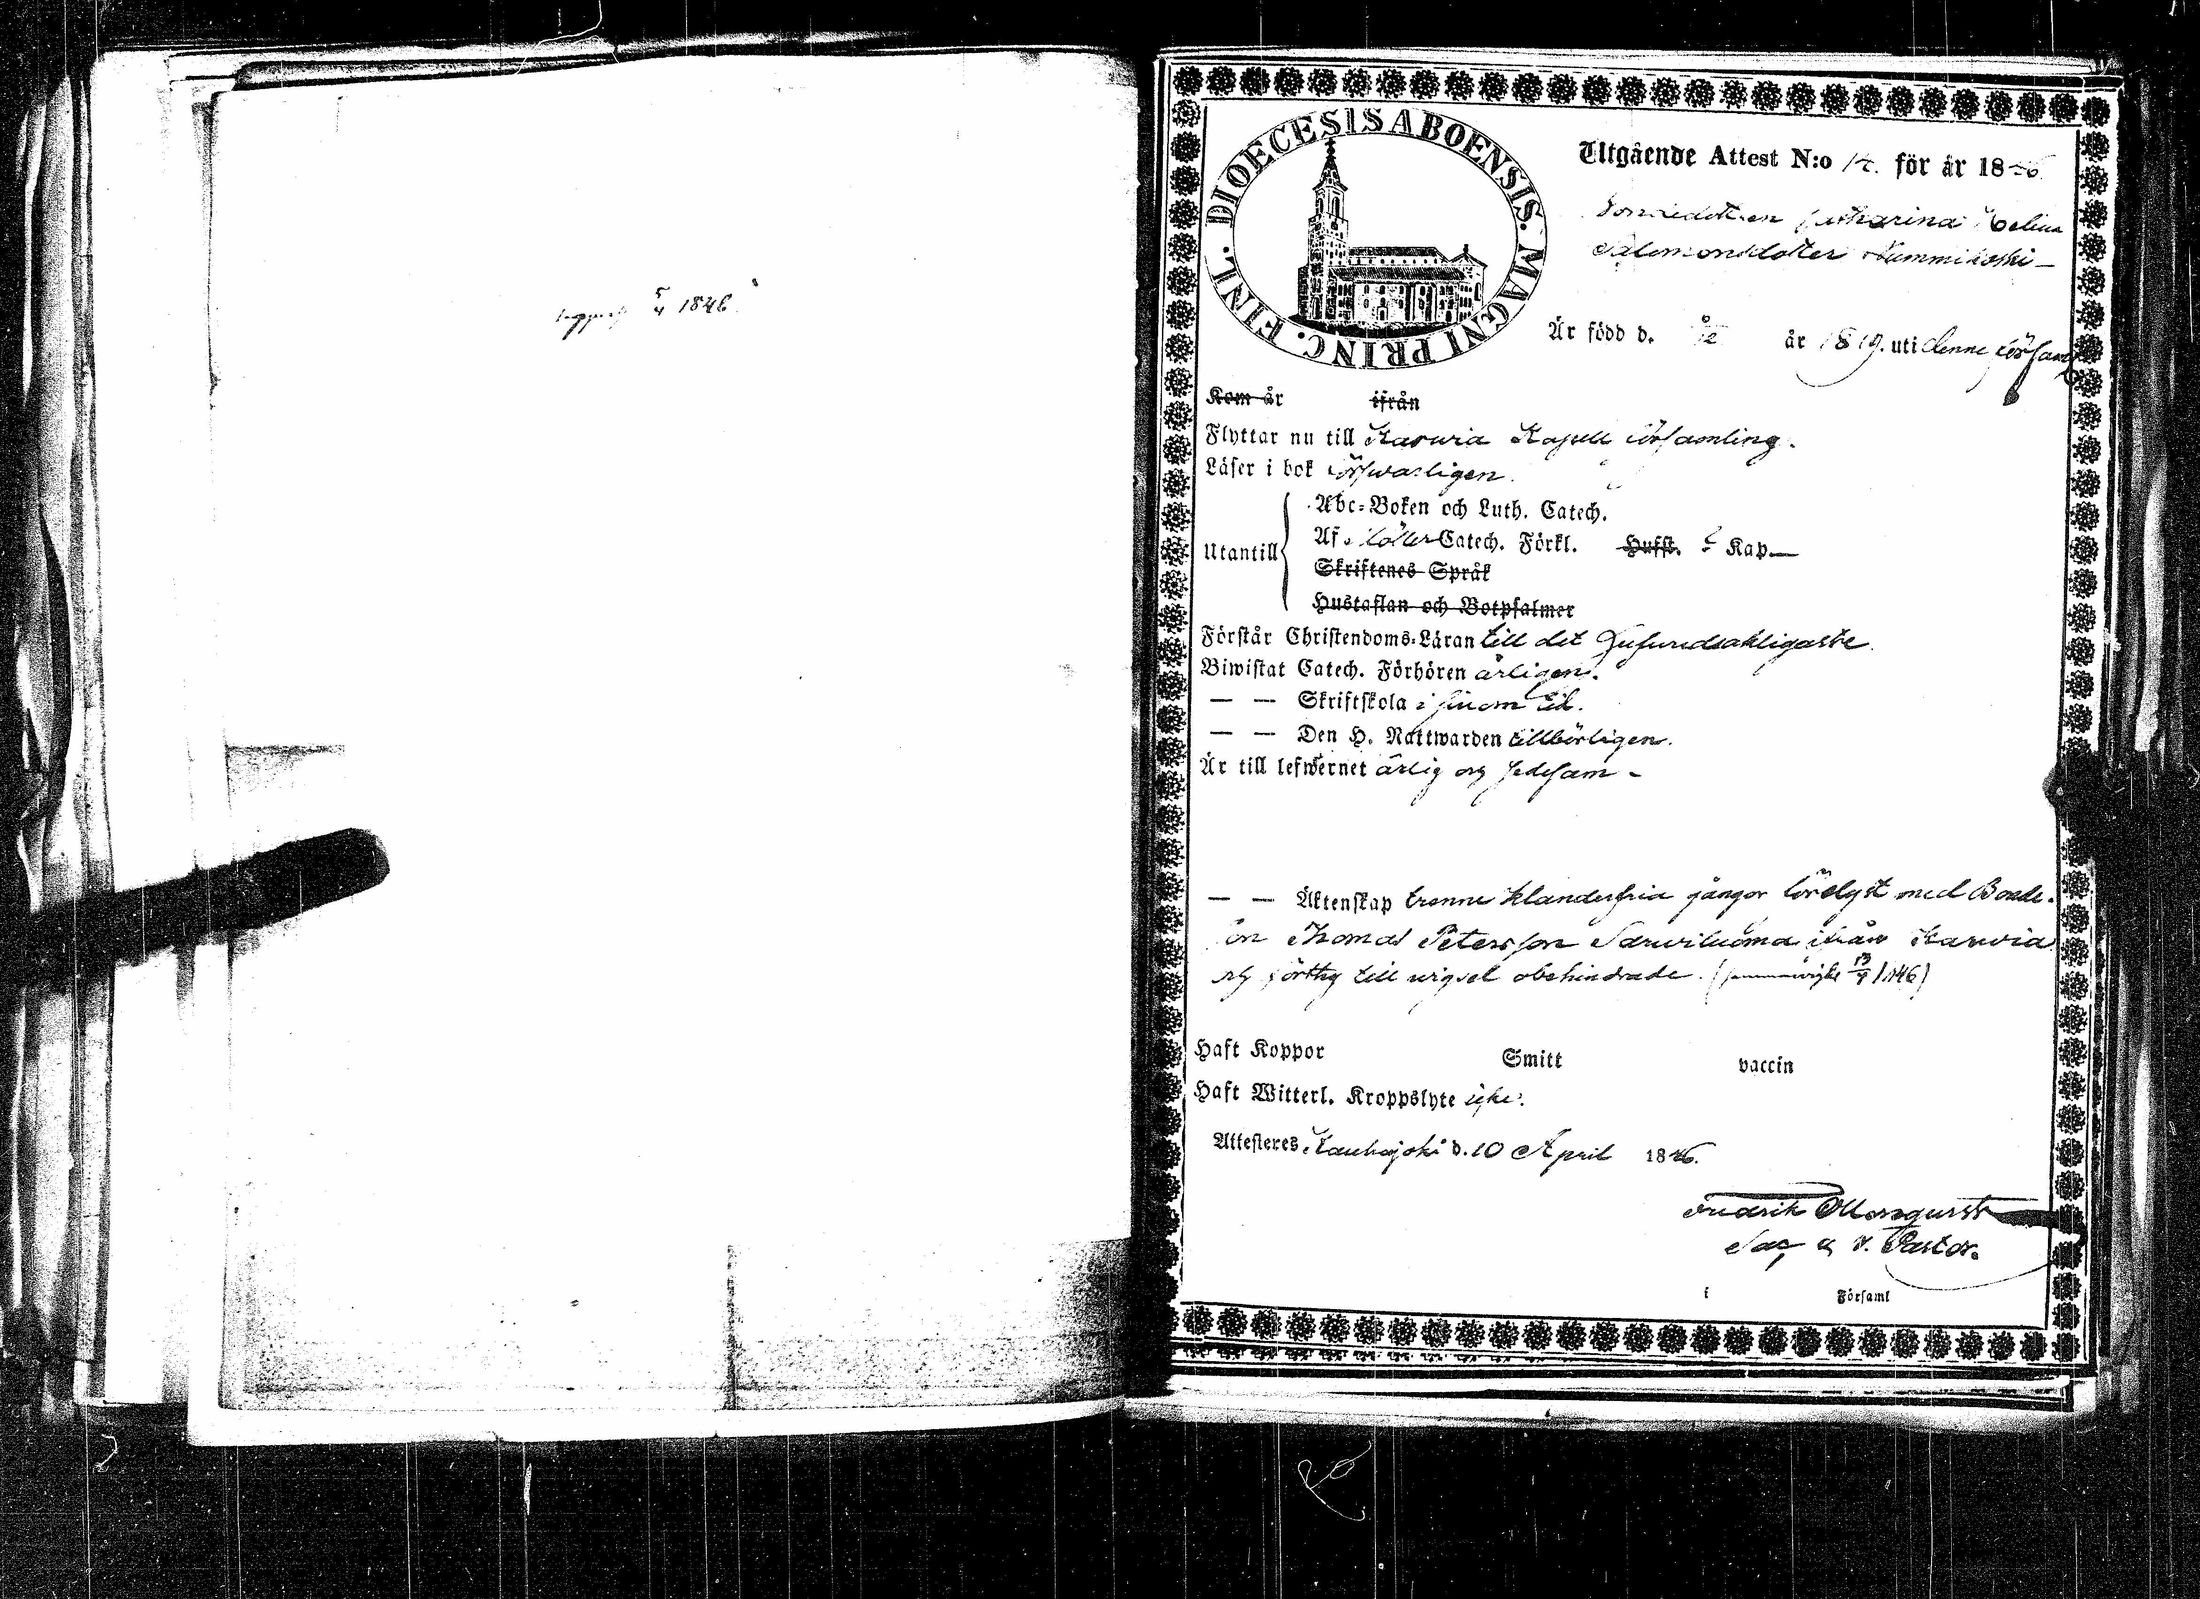 5/4 1846
DIOECESIS ABOENSIS. MAGNI PRINC. FINL.
Utgående Attest N:o 14. för år 1846
Bondedottren Catharina Helena
Salomonsdotter Nummikoski
Är född d. år 1819. uti denne församl
Kom år ifrån
Flyttar nu till Karvia Kapell församling.
Läser i bok försvarligen.
Utantill
Abc-Boken och Luth. Catech.
Af Catech. Förkl. Husst. Kap
Skriftenes Språk
Hustaflan och Botpsalmer
Förstår Christendoms-Läran till det
Biwistat Catech. Förhören årligen.
— — Skriftskola i sinom tid.
— — Den H. Nattwarden tillbörligen.
Är till lefwernet ärlig och sedesam -
— — Äktenskap trenne klanderfria gångor lörelyst med Bonde-
son Thomas Petersson Sarviluoma ifrån Karvia
och förthy till vigsel obehindrade. (sammanvigde 13/4 1846)
Haft Koppor Smitt vaccin
Haft Witterl. Kroppslyte icke.
Attesteres Kauhajoki d. 10 April 1846.
Fredrik
Sac. & v. Pastor.
i Församl